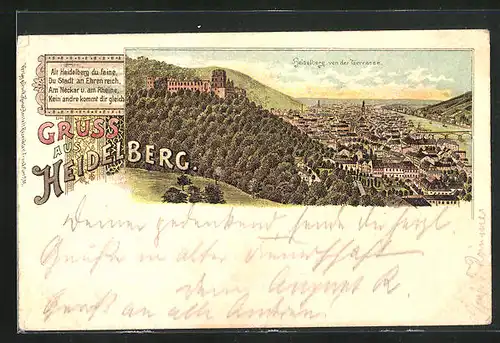 Alt Heidelberg du feine,
Du Stadt an Ehren reich,
Am Neckar u. am Rheine,
Kein andre kommt dir gleich
Heidelberg von der Terrasse.
GRUSS
AUS
HEIDELBERG.
Deiner gedenkend sende Dir herzl.
Grüße in alter Freundschaft
dein August R.
Gruß an alle Andern.